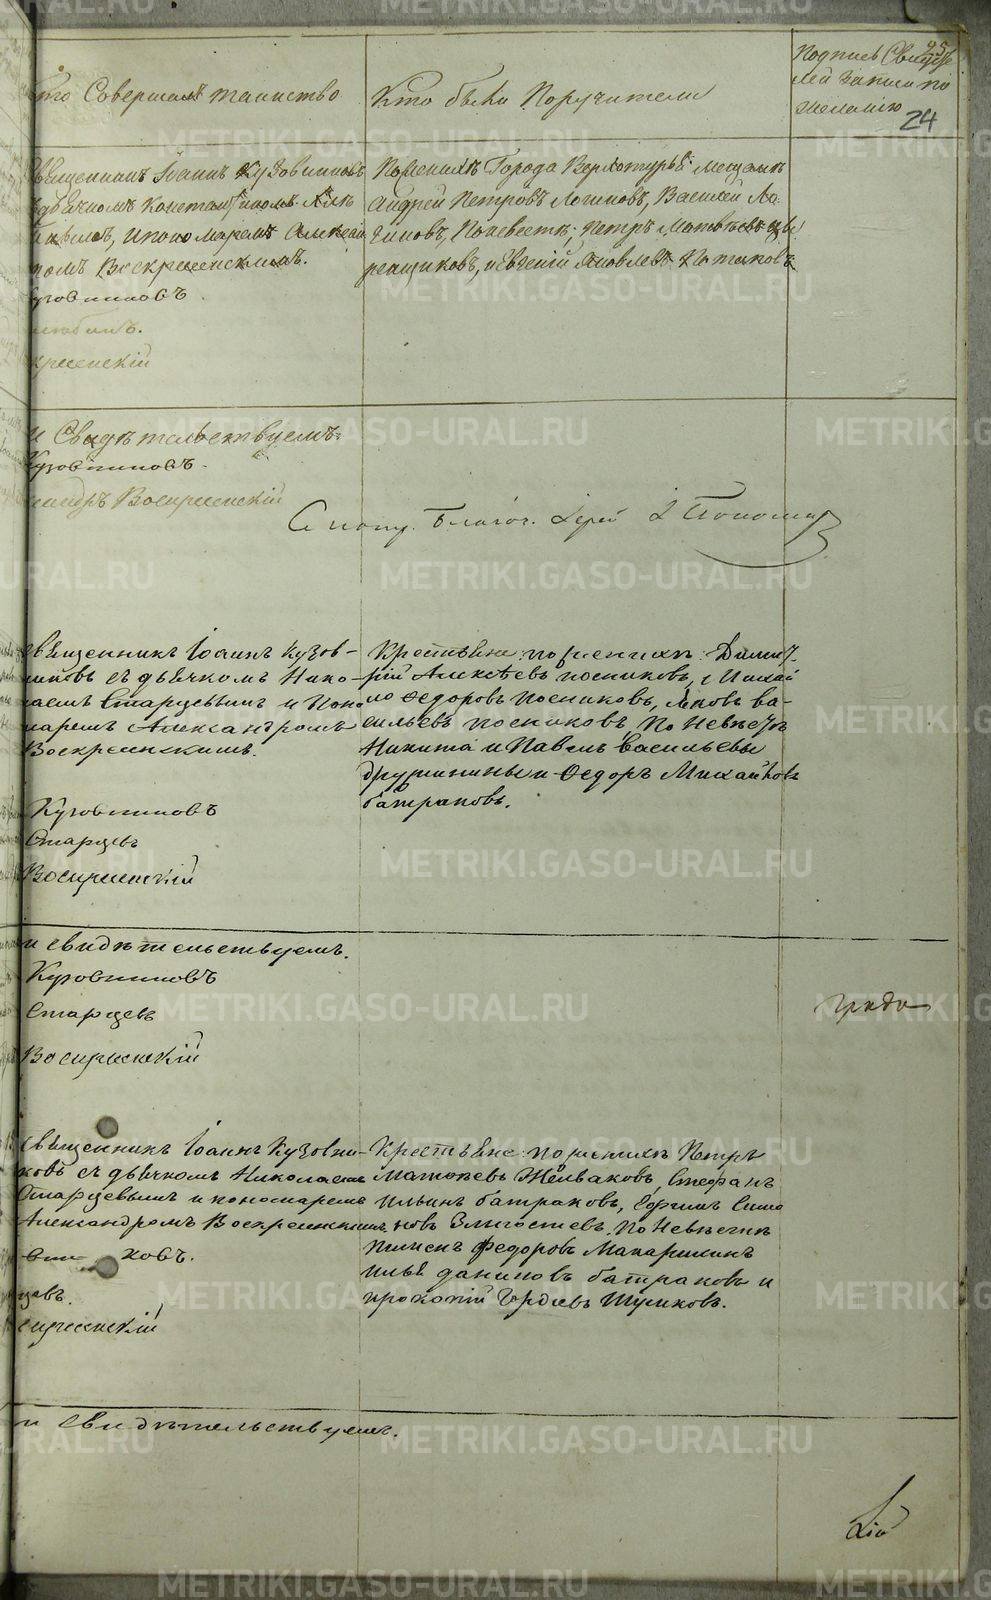 Кто Совершалъ таинство
Кто были Поручители
Подпись Свидѣте
лей записи по
желанію
25
24
Священникъ Іоаннъ Кузовниковъ
съ дьячкомъ Константиномъ
и пономаремъ Алексан
ромъ Воскресенскимъ.
Кузовниковъ
кресенскій
По женихѣ Города Верхотурья мещане
Андрей Петровъ Логиновъ, Василей Ло
гиновъ, По невестѣ, Петръ Матвѣевъ
и Евгеній Яковлевъ Потаповъ
и Свидѣтельствуемъ
Кузовниковъ.
сандръ Воскресенскій
Благоч. Іерей
Священникъ Іоаннъ Кузов-
никовъ съ дьячкомъ Нико-
лаемъ Старцевымъ и Поно
маремъ Александромъ
Воскресенскимъ.
Кузовниковъ
Старцевъ
Воскресенскій
Крестьяне: по женихѣ: Димит-
рій Алексѣевъ посниковъ, Михай
ло Ѳедоровъ посниковъ, Яковъ ва-
сильевъ посниковъ, По Невестѣ
Никита и Павелъ васильевы
дружинины и Ѳедоръ Михайловъ
батраковъ.
и свидѣтельствуемъ.
Кузовниковъ
Старцевъ
Воскресенскій
Священникъ Іоаннъ Кузовни-
ковъ съ дьячкомъ Николаемъ
Старцевымъ и пономаремъ
Александромъ Воскресенскимъ.
ковъ.
цевъ.
скресенскій
Крестьяне: по женихѣ Петръ
Матвѣевъ Желваковъ, Стефанъ
Ильинъ батраковъ, Ефимъ Симо
новъ Злыгостевъ. По Невѣстѣ
Пименъ Ѳедоровъ Макарихинъ
Илья даниловъ батраковъ и
прокопій Гордѣевъ Шумковъ.
и свидѣтельствуемъ.
METRIKI.GASO-URAL.RU